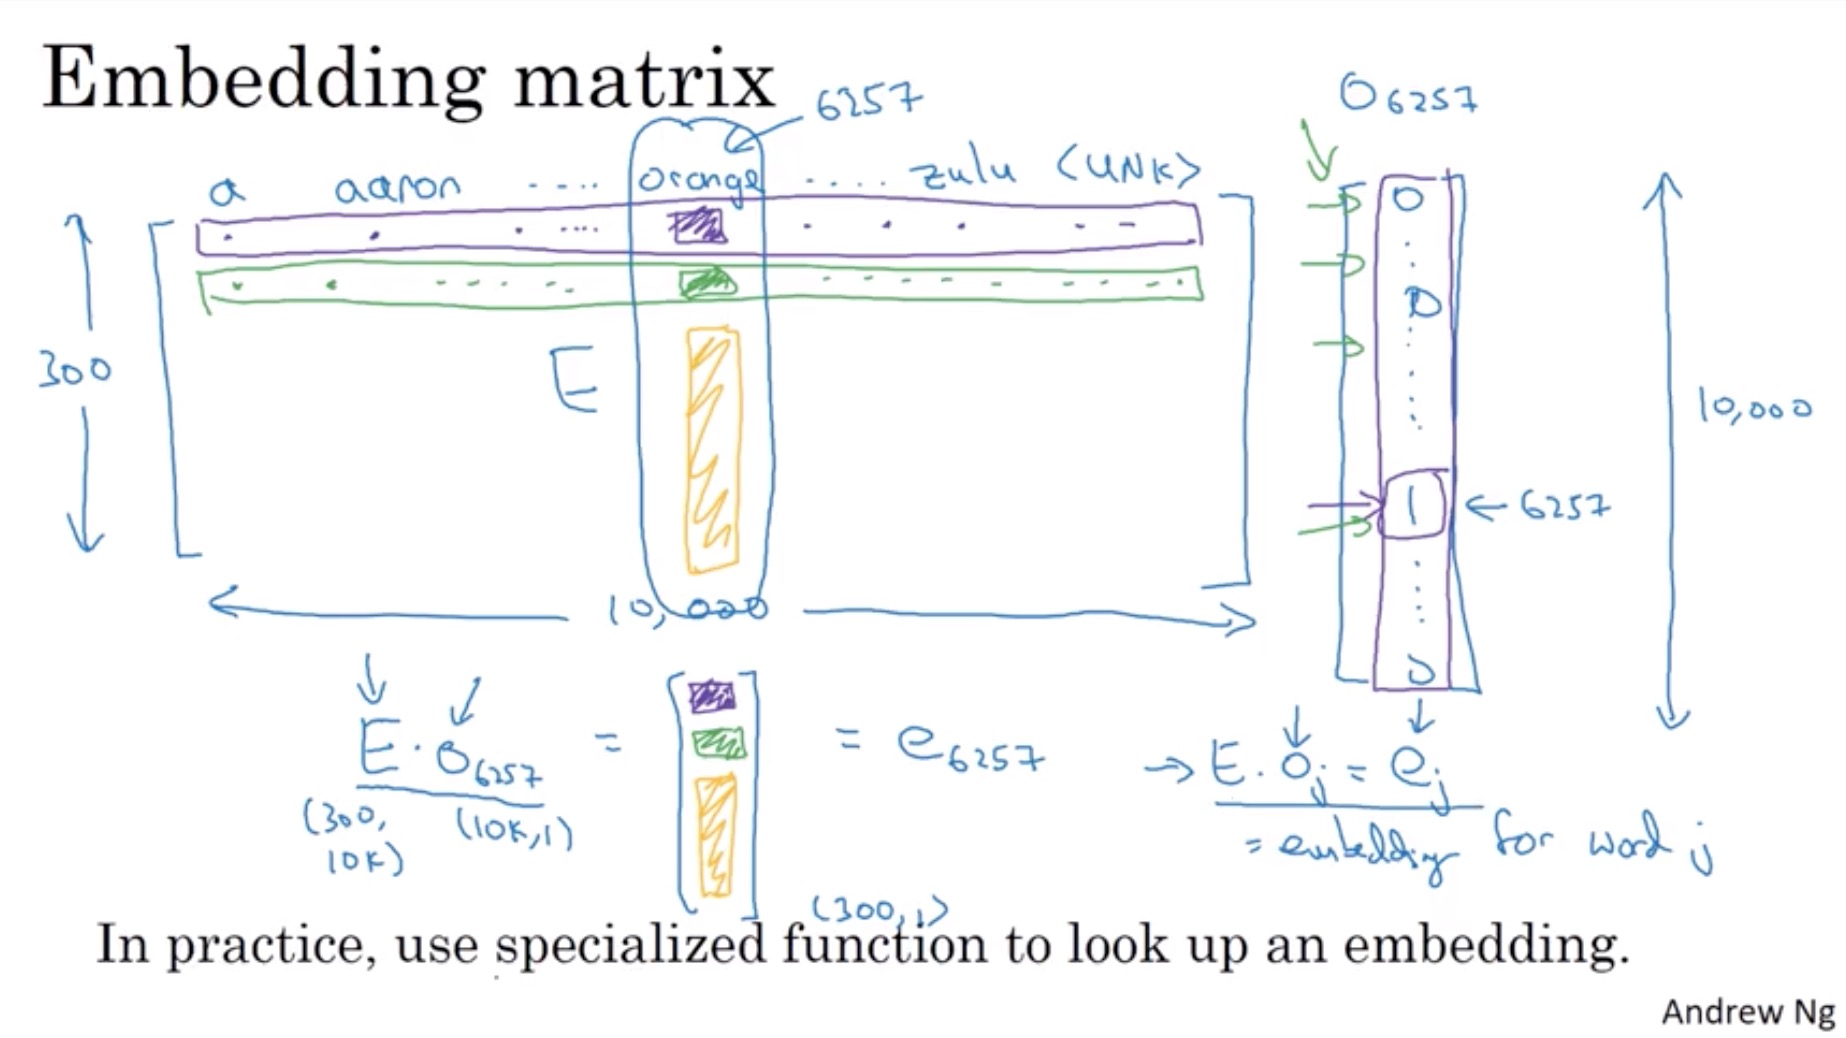 Embedding matrix
6257
O6257
a aaron ..... orange ..... zulu <UNK>
0
0
300
E
10,000
1 ← 6257
10,000
0
E · O6257 = [ ] = e6257
(300, 10K) (10K,1)
(300,1)
→ E · Oj = ej
= embedding for word j
In practice, use specialized function to look up an embedding.
Andrew Ng